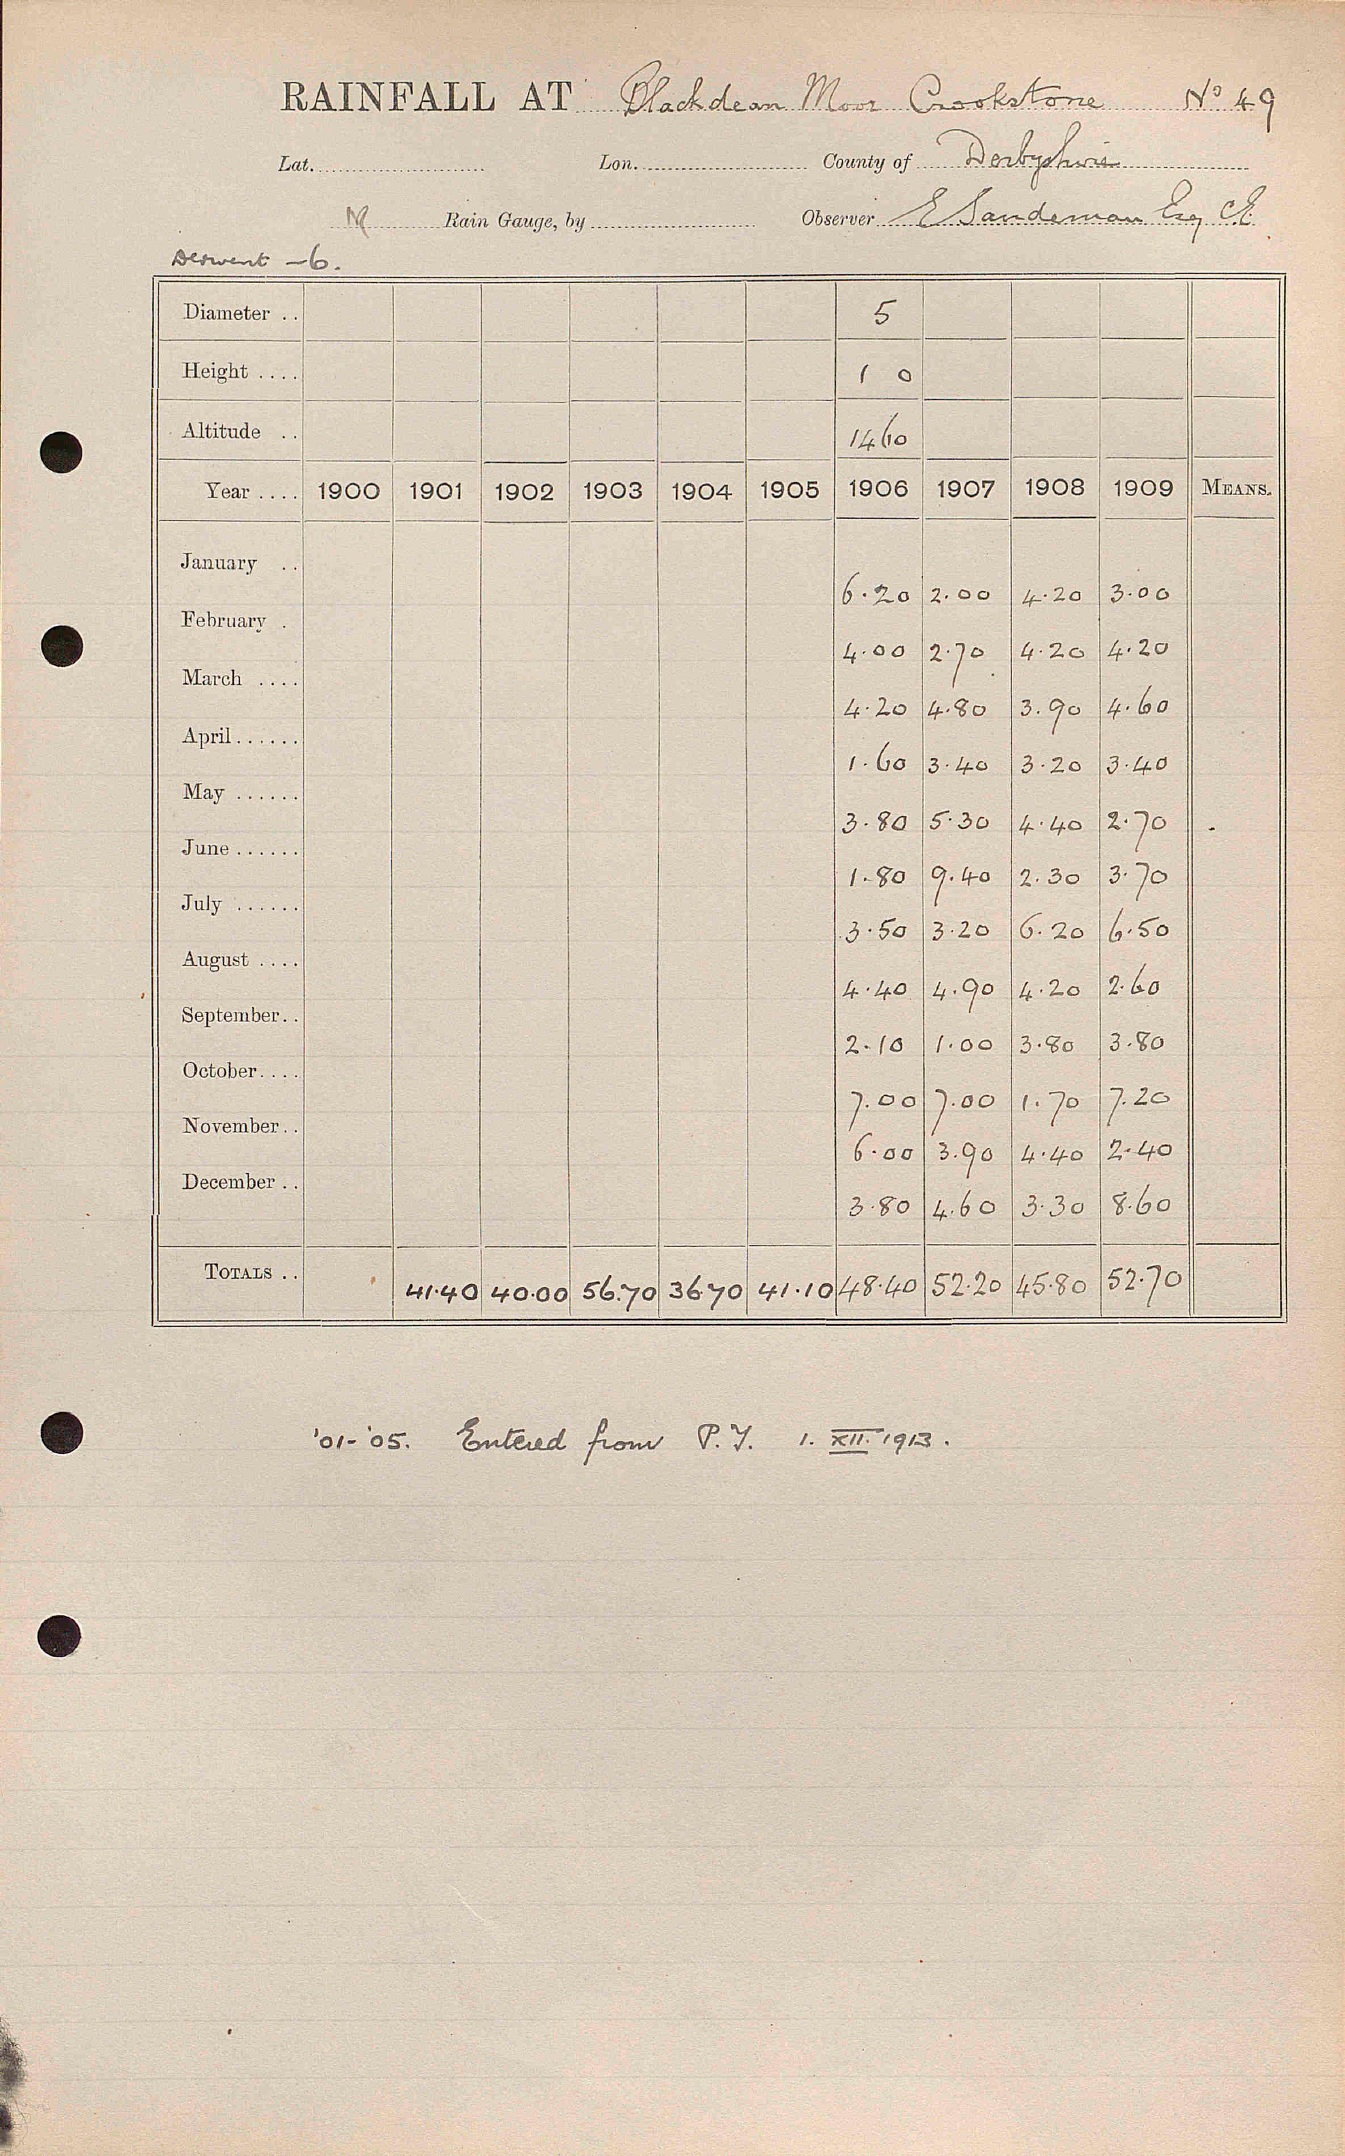 RAINFALL AT Blackdean Moor Crookstone No 49
Lat. Lon. County of Derbyshire
M Rain Gauge, by Observer E Sandeman Esq C.E.
Derwent - 6.
Diameter .. 5
Height .... 1 0
Altitude .. 1460
Year .... 1900 1901 1902 1903 1904 1905 1906 1907 1908 1909 MEANS.
January .. 6.20 2.00 4.20 3.00
February . 4.00 2.70 4.20 4.20
March .... 4.20 4.80 3.90 4.60
April...... 1.60 3.40 3.20 3.40
May ...... 3.80 5.30 4.40 2.70
June ...... 1.80 9.40 2.30 3.70
July ...... 3.50 3.20 6.20 6.50
August .... 4.40 4.90 4.20 2.60
September.. 2.10 1.00 3.80 3.80
October.... 7.00 7.00 1.70 7.20
November.. 6.00 3.90 4.40 2.40
December .. 3.80 4.60 3.30 8.60
TOTALS .. 41.40 40.00 56.70 36.70 41.10 48.40 52.20 45.80 52.70
'01-'05. Entered from P.Y. 1. XII. 1913.